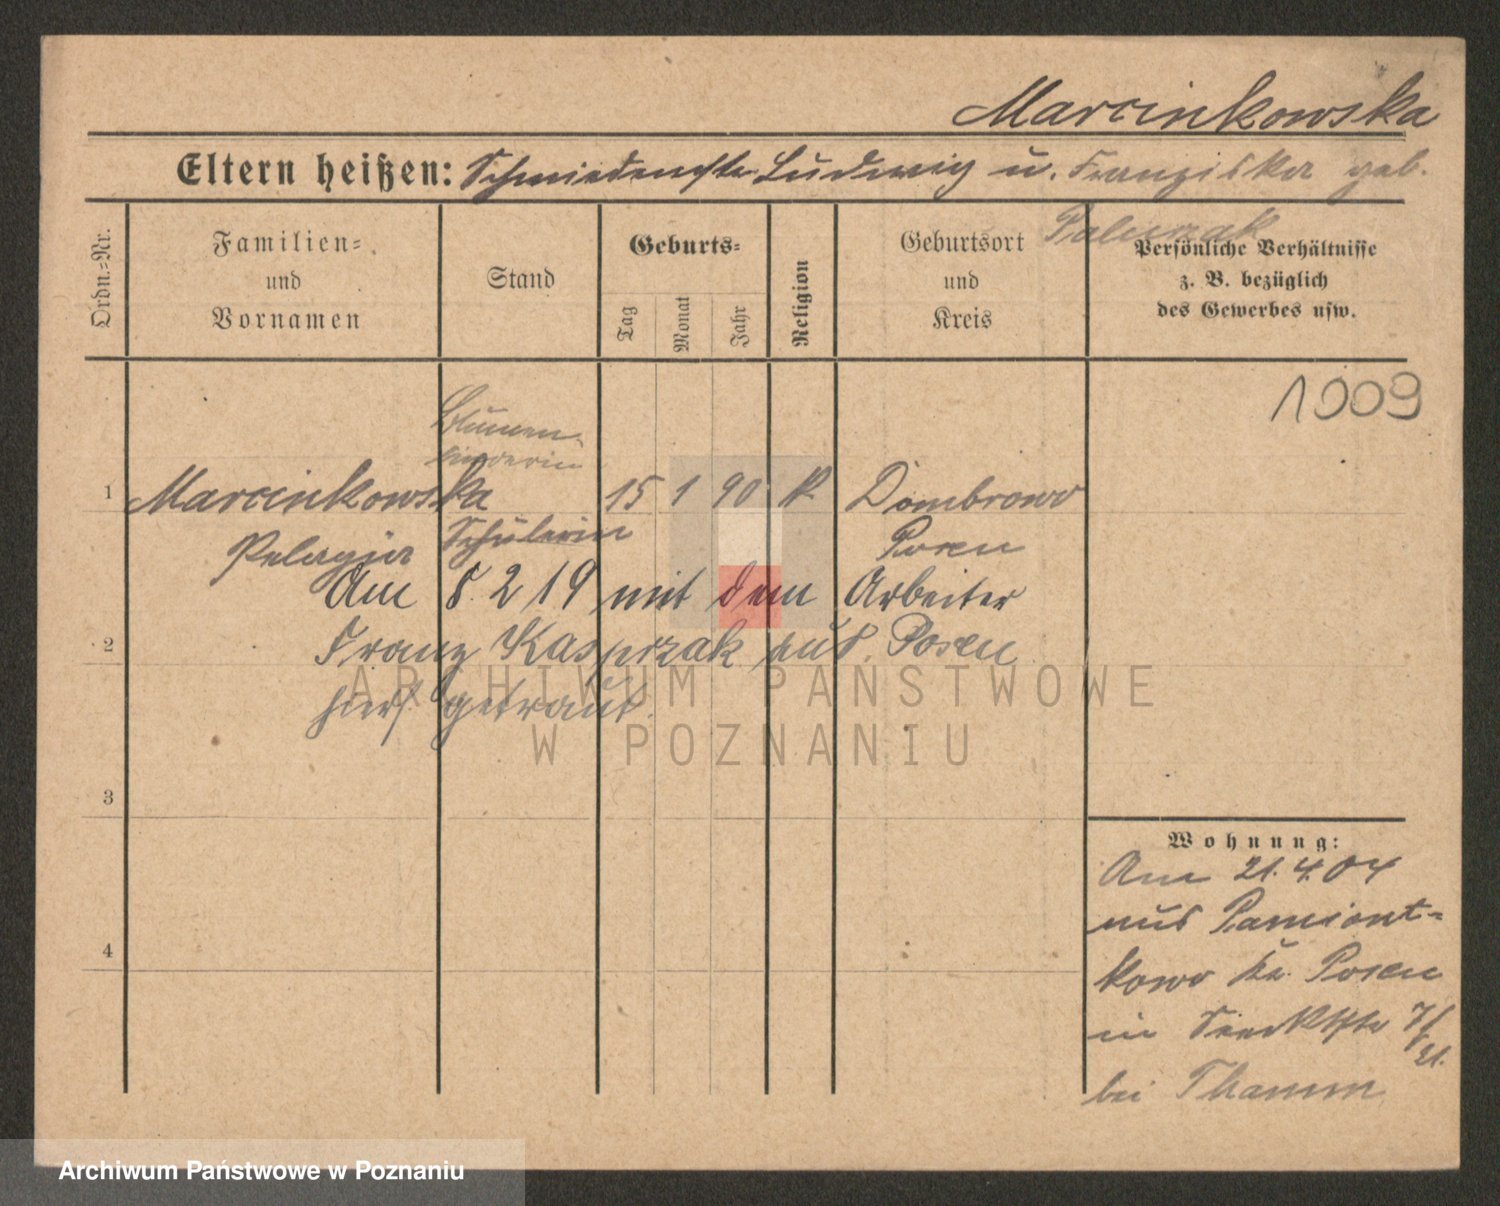 Marcinkowska
Eltern heißen: Schmiedemstr. Ludwig u. Franziska geb.
Ordn.-Nr.
Familien-
und
Vornamen
Stand
Geburts-
Tag
Monat
Jahr
Religion
Geburtsort
und
Kreis
Persönliche Verhältnisse
z. B. bezüglich
des Gewerbes usw.
1009
Blumen-
binderin
1 Marcinkowska 15 1 90 k. Dombrowo
Pelagia Schülerin Posen
Am 8. 2 19 mit dem Arbeiter
2 Franz Kasprzak aus Posen
hiers. getraut.
3
4
Wohnung:
Am 21.4.04
aus Pamiont-
kowo Kr. Posen
in 7/
21.
bei Thamm
ARCHIWUM PAŃSTWOWE
W POZNANIU
Archiwum Państwowe w Poznaniu